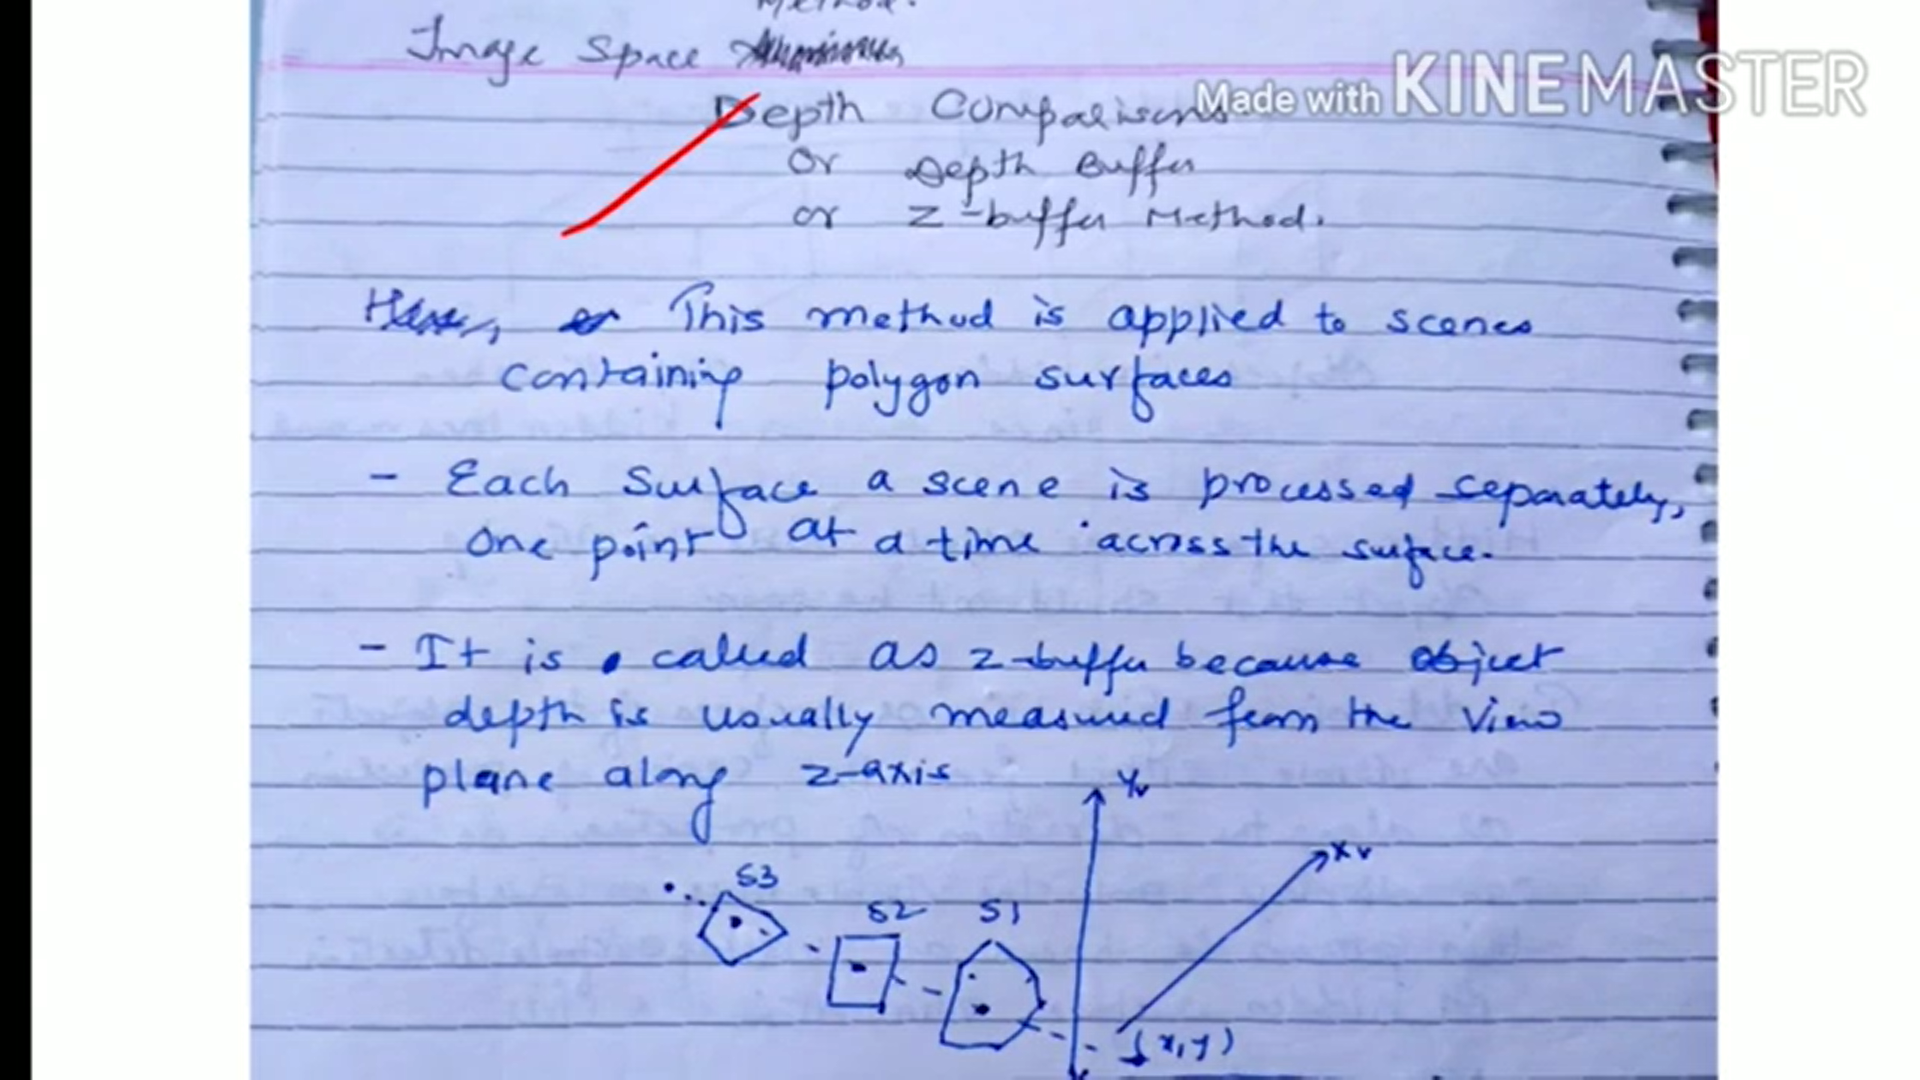 Method.
Image Space
Made with KINEMASTER
Depth Comparisons
or Depth Buffer
or z-buffer Method.
This method is applied to scenes
containing polygon surfaces
- Each surface a scene is processed separately,
one point at a time across the surface.
- It is called as z-buffer because object
depth is usually measured from the view
plane along z-axis
Yv
Xv
S3
S2 S1
(x,y)